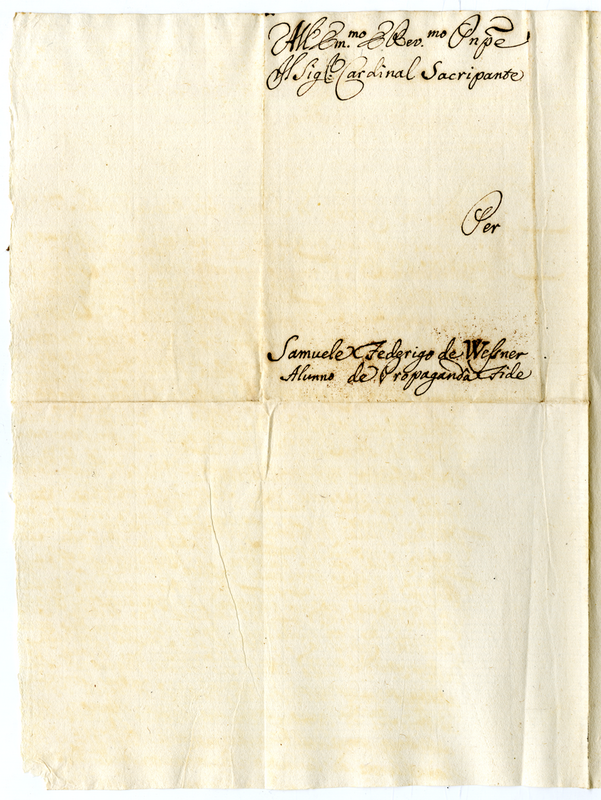 All' Em.mo e Rev.mo Pnpe
Il Sig.r Cardinal Sacripante
Per
Samuele Federigo de Weßner
Alunno de Propaganda Fide